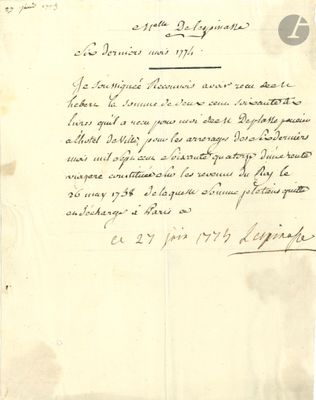 27 juin 1775
Melle De Lespinasse
Six derniers mois 1774.
Je soussignée Reconnois avoir reçu de M
hebert la somme de deux cens soixante
livres qu'il a reçu pour moi de M De
a l'hotel de ville pour les arrerages des Six derniers
mois mil Sept cens Soixante quatorze d'une rente
viagere constituée sur les revenus du Roy le
26 may 1758 de laquelle Somme je le tiens quitte
et décharge à Paris ce
ce 27 juin 1775 Lespinasse